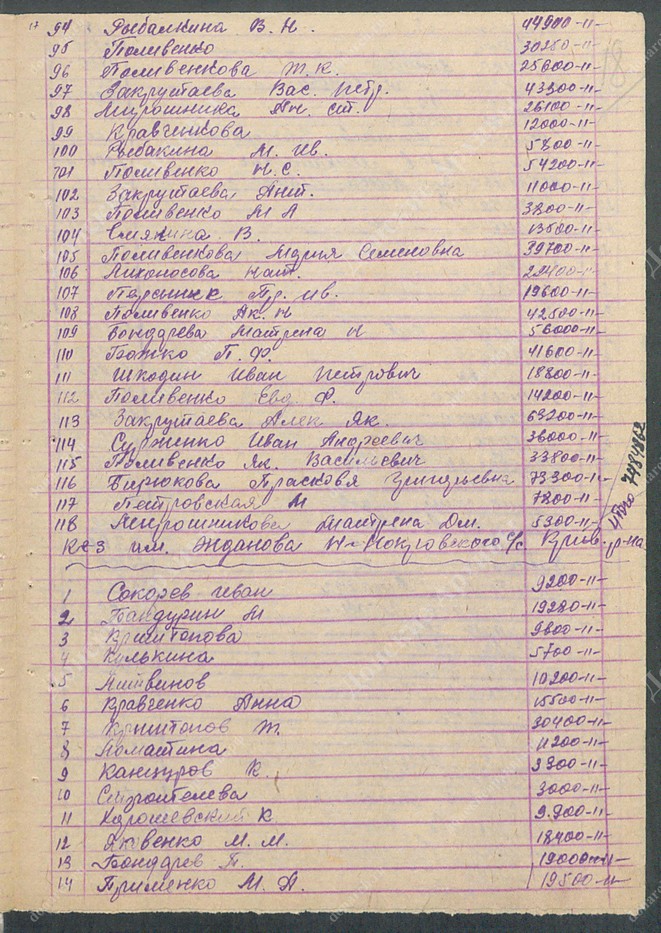 94 Рыбалкина В. Н. 44900-11-
95 Поливенко 30250-11-
96 Поливенкова М. К. 25600-11-
97 Закрутаева Вас. Петр. 43300-11-
98 Мирошника Ан. ст. 26100-11-
99 Кравченкова 12000-11-
100 Рыбакина М. Ив. 5800-11-
101 Поливенко Н. С. 54200-11-
102 Закрутаева Ант. 11000-11-
103 Поливенко М А 3800-11-
104 Смякина В. 13500-11-
105 Поливенкова Мария Семеновна 39700-11-
106 Лихоносова Нат. 22400-11-
107 Ив. 19600-11-
108 Поливенко Ак. Н 42500-11-
109 Бондарева Матрена Н 56000-11-
110 Божко П. Ф. 41600-11-
111 Шкодин Иван Петрович 18800-11-
112 Поливенко Евд. Ф. 14200-11-
113 Закрутаева Алек Як. 69200-11-
114 Сурженко Иван Андреевич 36000-11-
115 Поливенко Як. Васильевич 33800-11-
116 Бирюкова Прасковя Григорьевна 73300-11-
117 Петровская М 7200-11-
118 Мирошникова Матрена Дм. 5300-11-
Итого 7484862
К-з им. Жданова Н-Покровского с/с р-на
1 Сокорев Иван 9200-11-
2 Бандурин М 19280-11-
3 Криштопова 9800-11-
4 Кулькина 5700-11-
5 Литвинов 10200-11-
6 Кравченко Анна 15500-11-
7 Криштопов М. 30400-11-
8 Ломатина 11200-11-
9 К. 3300-11-
10 3000-11-
11 К. 9.900-11-
12 Яковенко М. М. 18400-11-
13 Бондарев П. 19000-11-
14 Применко М. А. 19500-11-